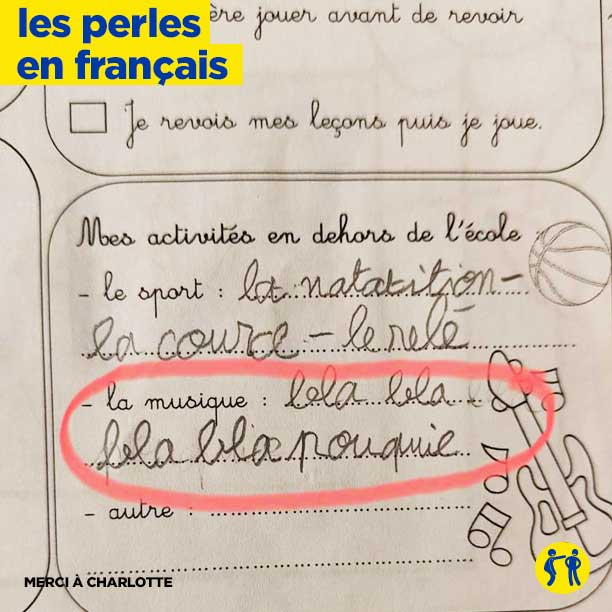 les perles
en français
ère jouer avant de revoir
Je revois mes leçons puis je joue.
Mes activités en dehors de l'école :
- le sport : la natatition -
la cource - le relé
- la musique : bla bla
bla bla pouquie
- autre :
MERCI À CHARLOTTE